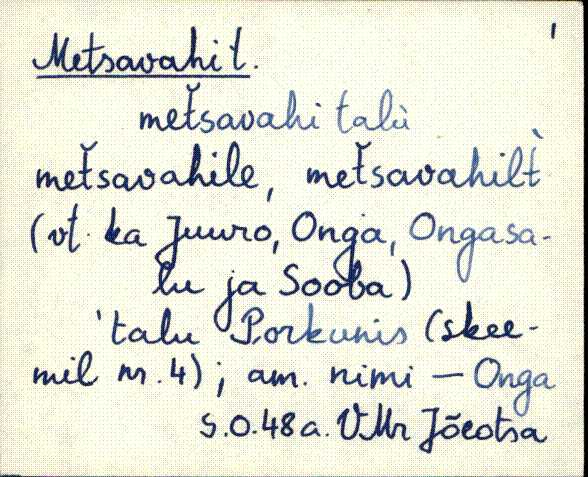 Metsavahi t.
met̆savahi talù
met̆savahile, met̆savahilt̀
(vt. ka Juuro, Onga, Ongasa-
lu ja Sooba)
'talu Porkunis (skee-
mil nr. 4); am. nimi — Onga
S.O.48a. VMr Jõeotsa